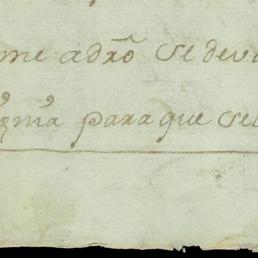 me adrõ se dev
para que se